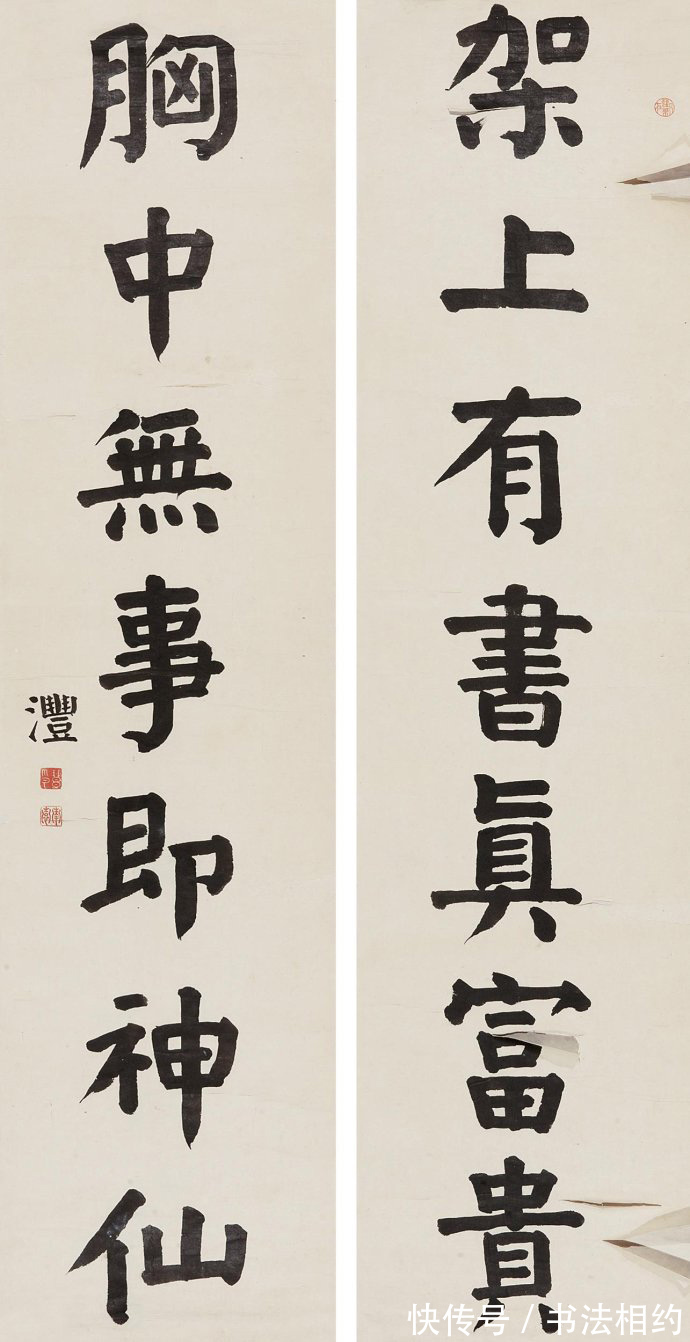 架上有書眞富貴
胸中無事即神仙
灃
快传号 / 书法相约